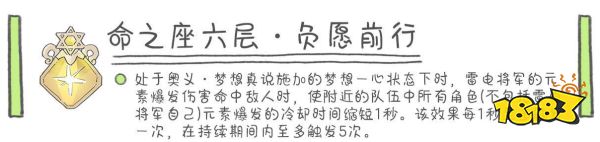 命之座六层·负愿前行
处于奥义·梦想真说施加的梦想一心状态下时，雷电将军的元
素爆发伤害命中敌人时，使附近的队伍中所有角色(不包括雷
将军自己)元素爆发的冷却时间缩短1秒。该效果每1秒
一次，在持续期间内至多触发5次。
18183